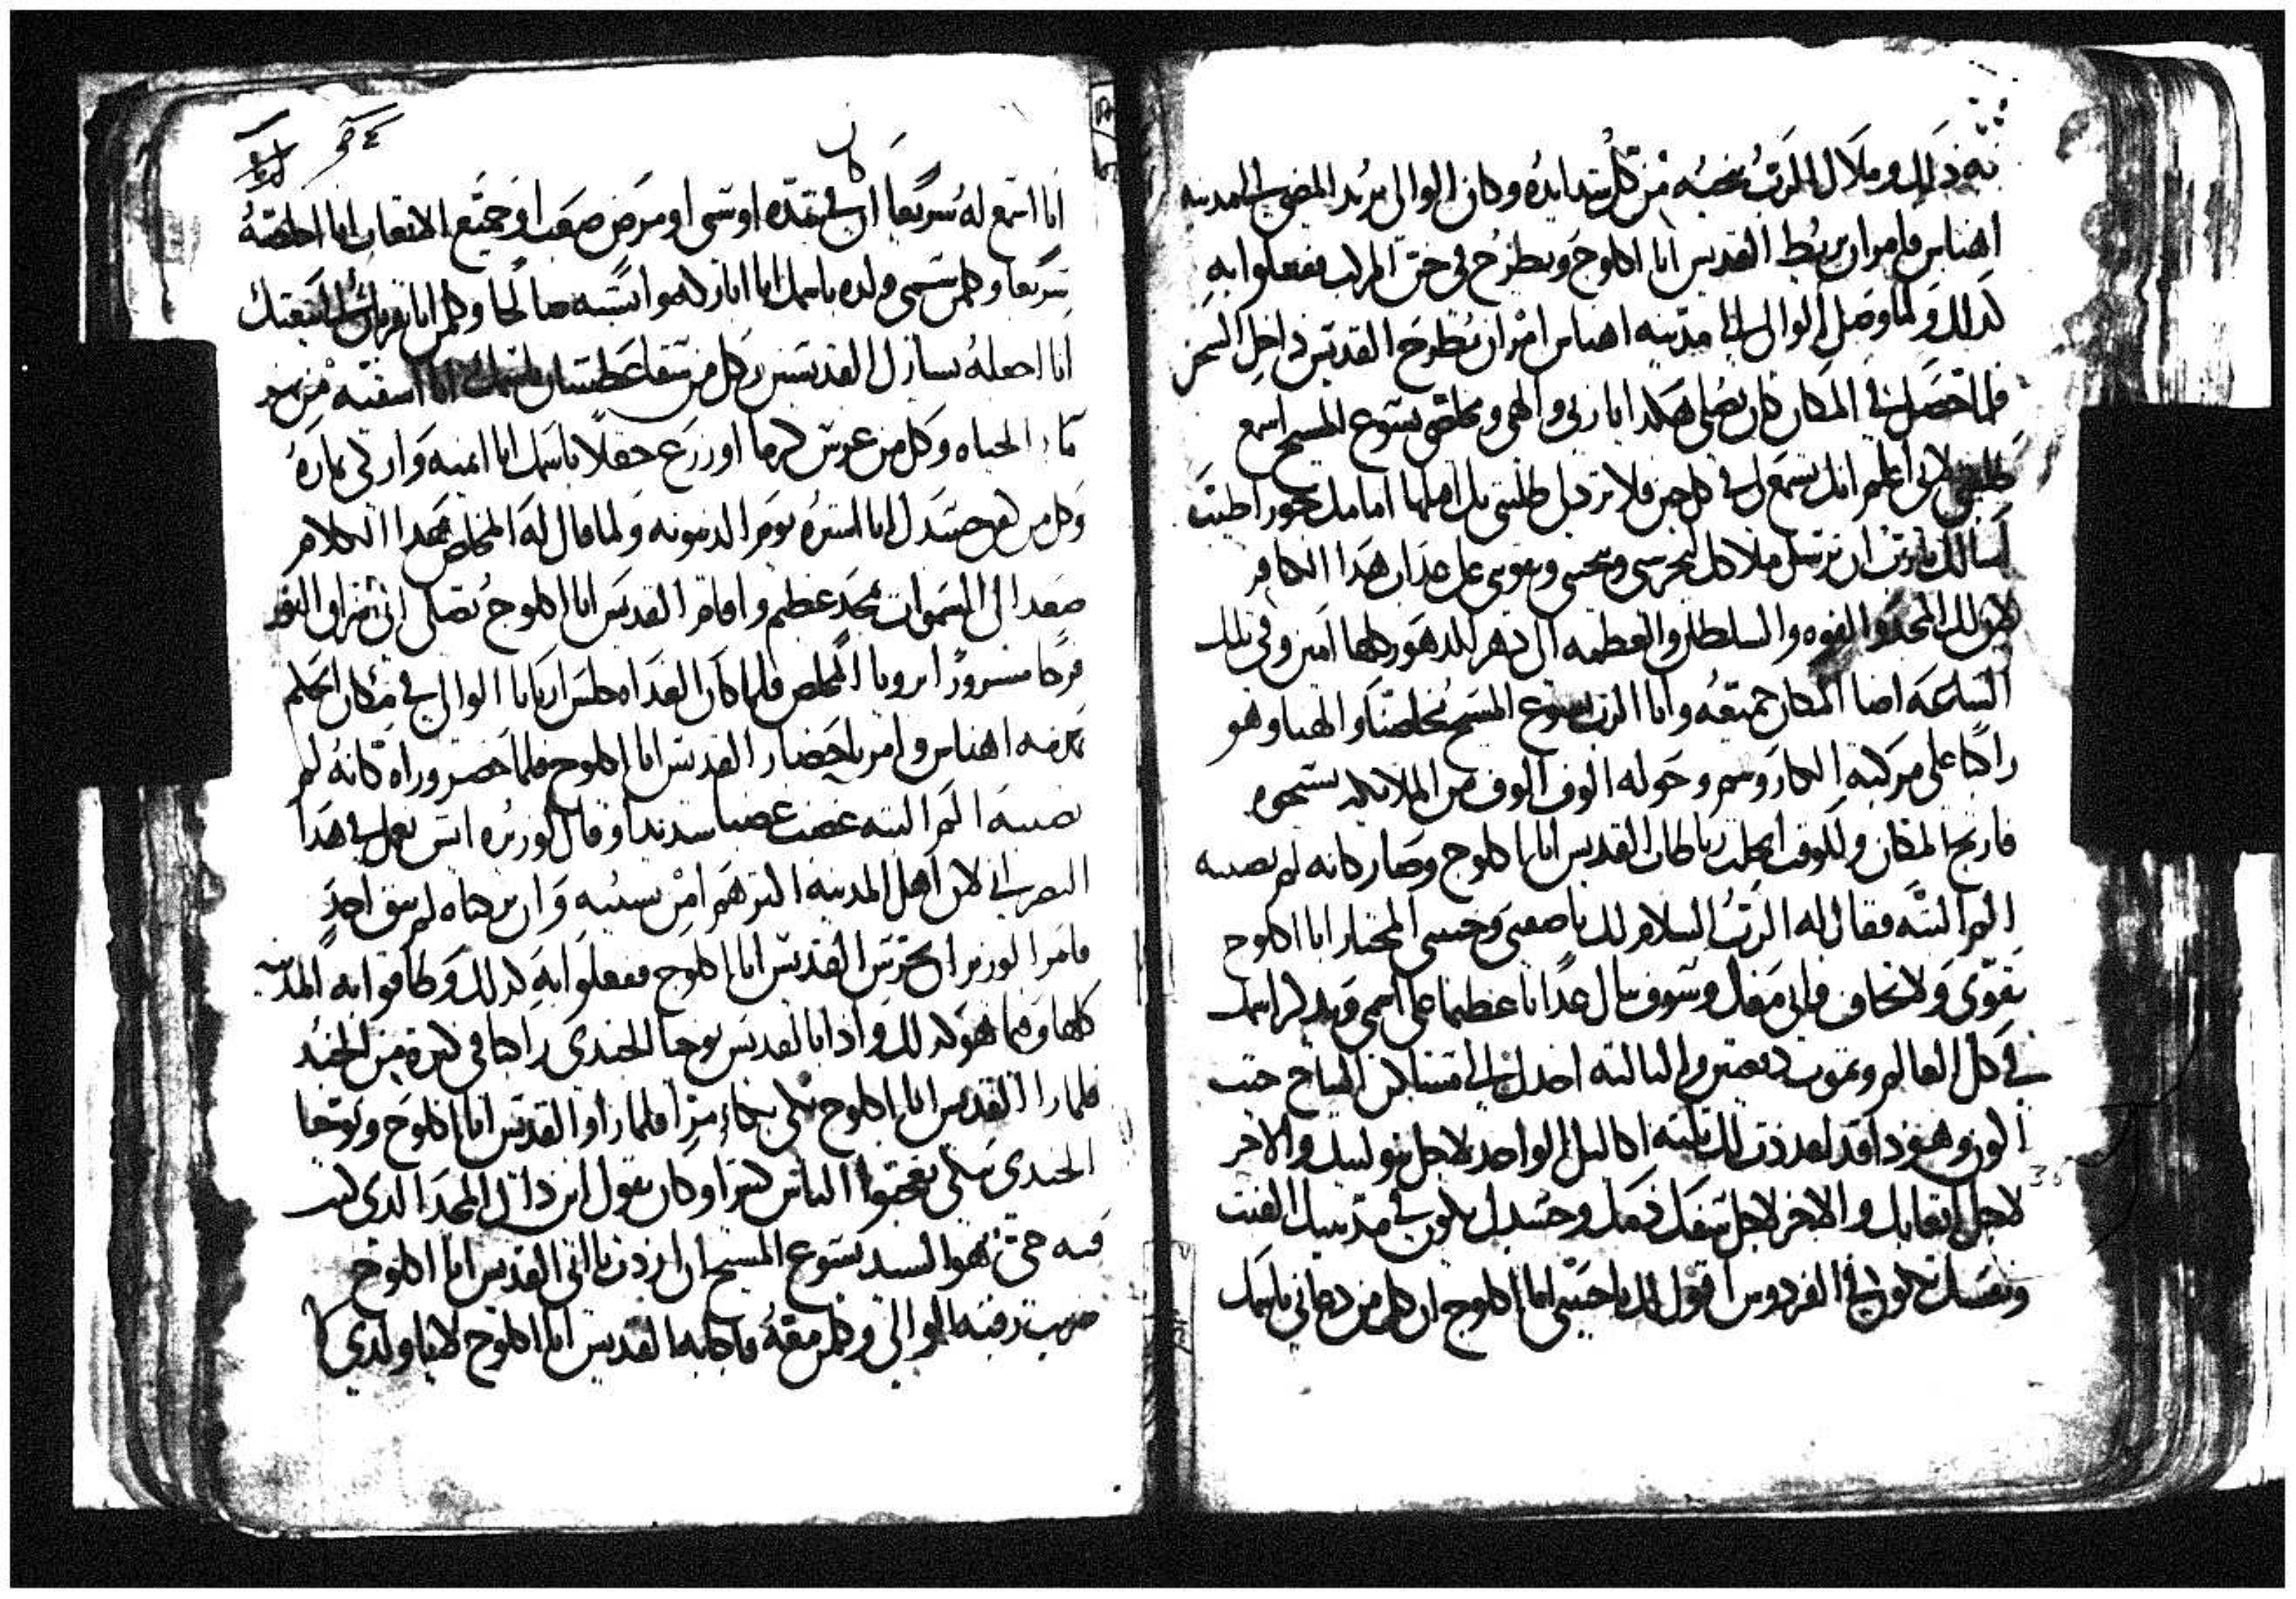 به ذلك وملاك الرب ينجيه من كل شدايده وكان الوالي يريد المضي الي المدينه
اهناس فامر ان يربط القديس ابا اكلوج ويطرح في خن المركب ففعلوا به
كذلك ولما وصل الوالي الي مدينه اهناس امر ان يطرح القديس داخل السجن
فلما حصل في المكان كان يصلي هكذا يا ربي والهي ومخلصي يسوع المسيح اسمع
طلبتي لاني اعلم انك تسمع لي في كل حين فلا ترد لي طلبتي بل اقبلها امامك بخور اطيب
اسالك يارب ان ترسل ملاكك ليحرسني وينجيني ويقويني على عذاب هذا الكافر
لان لك المجد والقوه والسلطان والعظمه الى دهر الدهور كلها امين وفي تلك
الساعه اضا المكان جميعه واتا الرب يسوع المسيح مخلصنا والهنا وهو
راكبا على مركبة الكاروبيم وحوله الوف الوف من الملايكه يسبحوه
فارتج المكان وللوقت انحلت رباطات القديس ابا اكلوج وصار كانه لم يصيبه
الم البته فقال له الرب السلام لك يا صفيي وحبيبي المختار ابا اكلوج
تقوى ولا تخاف فاني معك وسوف تنال عذابا عظيما على اسمي ويذكر اسمك
في كل العالم وتموت دفعتين والثالثه اخدك الي مساكن النياح حيث
النور وهوذا قد اعددت لك ثلثه اكاليل الواحد لاجل بتوليتك والاخر
لاجل اتعابك والاخر لاجل سفك دمك وجسدك يكون في مدينتك الفنت
ونفسك تكون في الفردوس اقول لك يا حبيبي ابا اكلوج ان كل من دعاني باسمك
انا اسمع له سريعا ان كان في شده او سبي او مرض صعب او جميع الاتعاب انا اخلصه
سريعا وكلمن يسمي ولده باسمك انا اباركه وانشيه صالحا وكلمن اتا بقربان الي بيعتك
انا اجعله يسازل القديسين وكل من سقا عطشان باسمك انا اسقيه من نهر
ماء الحياه وكل من غرس كرما او زرع حقلا باسمك انا انميه وابارك في ثماره
وكل من كفن جسدك انا استره يوم الدينونه ولما قال له المخلص هذا الكلام
صعد الى السموات بمجد عظيم واقام القديس ابا اكلوج يصلي الى ان اشرق النور
فرحا مسرورا برويا المخلص فلما كان الغداه جلس اريانا الوالي في مكان الحكم
بمدينه اهناس وامر باحضار القديس ابا اكلوج فلما حضر وراه كانه لم
يصيبه الم البته غضب غضبا شديدا وقال لوزيره ايش نعمل في هذا
النصراني لان اهل المدينه اكثرهم امن بسببه وان تركناه لم يبق احد
فامر الوزير ان يجرس القديس ابا اكلوج ففعلوا به كذلك وطافوا به المدينه
كلها وفيما هو كذلك واذا بالقديس يوحنا الجندي راكبا في كثره من الجند
فلما را القديس ابا اكلوج بكى بكاء مرا فلما راوا القديس ابا اكلوج ويوحنا
الجندي يبكي تعجبوا الناس كثيرا وكان يقول اين ذاك المجد الذي كنت
فيه حي هو السيد يسوع المسيح ان اردت يا ابي القديس ابا اكلوج
ضربت رقبه الوالي وكلمن معه فاجابه القديس ابا اكلوج لا يا ولدي